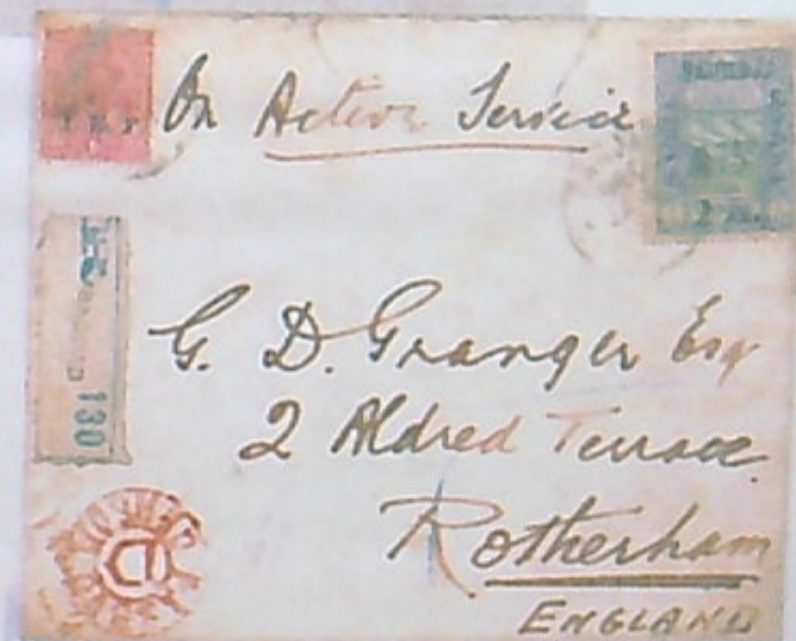 On Active Service
G. D. Granger Esq
2 Aldred Terrace.
Rotherham
ENGLAND
130